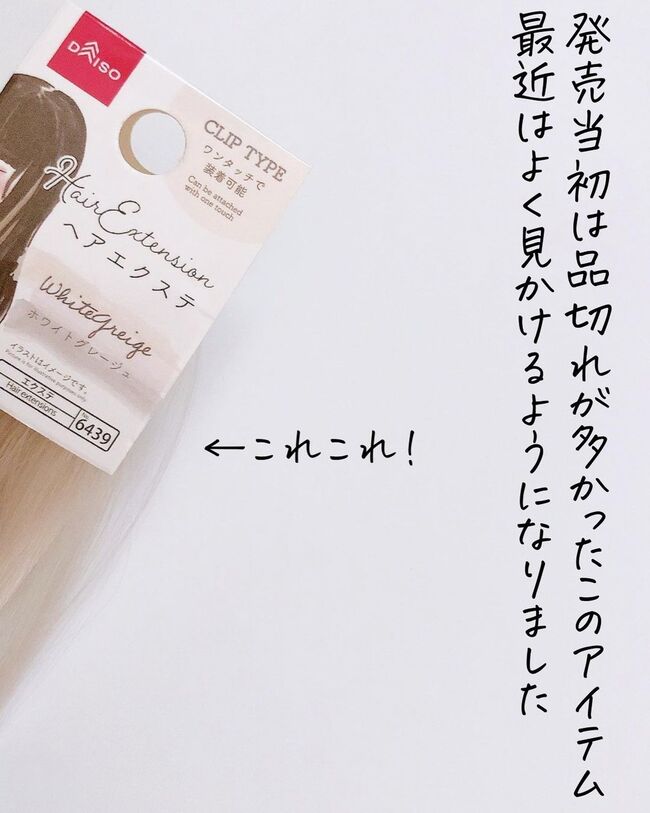 発売当初は品切れが多かったこのアイテム
最近はよく見かけるようになりました
←これこれ!
DAISO
CLIP TYPE
ワンタッチで
装着可能
Can be attached
with one touch
Hair Extension
ヘアエクステ
WhiteGreige
ホワイトグレージュ
イラストはイメージです。
Picture is for illustrative purposes only.
エクステ
Hair extensions
No.
6439